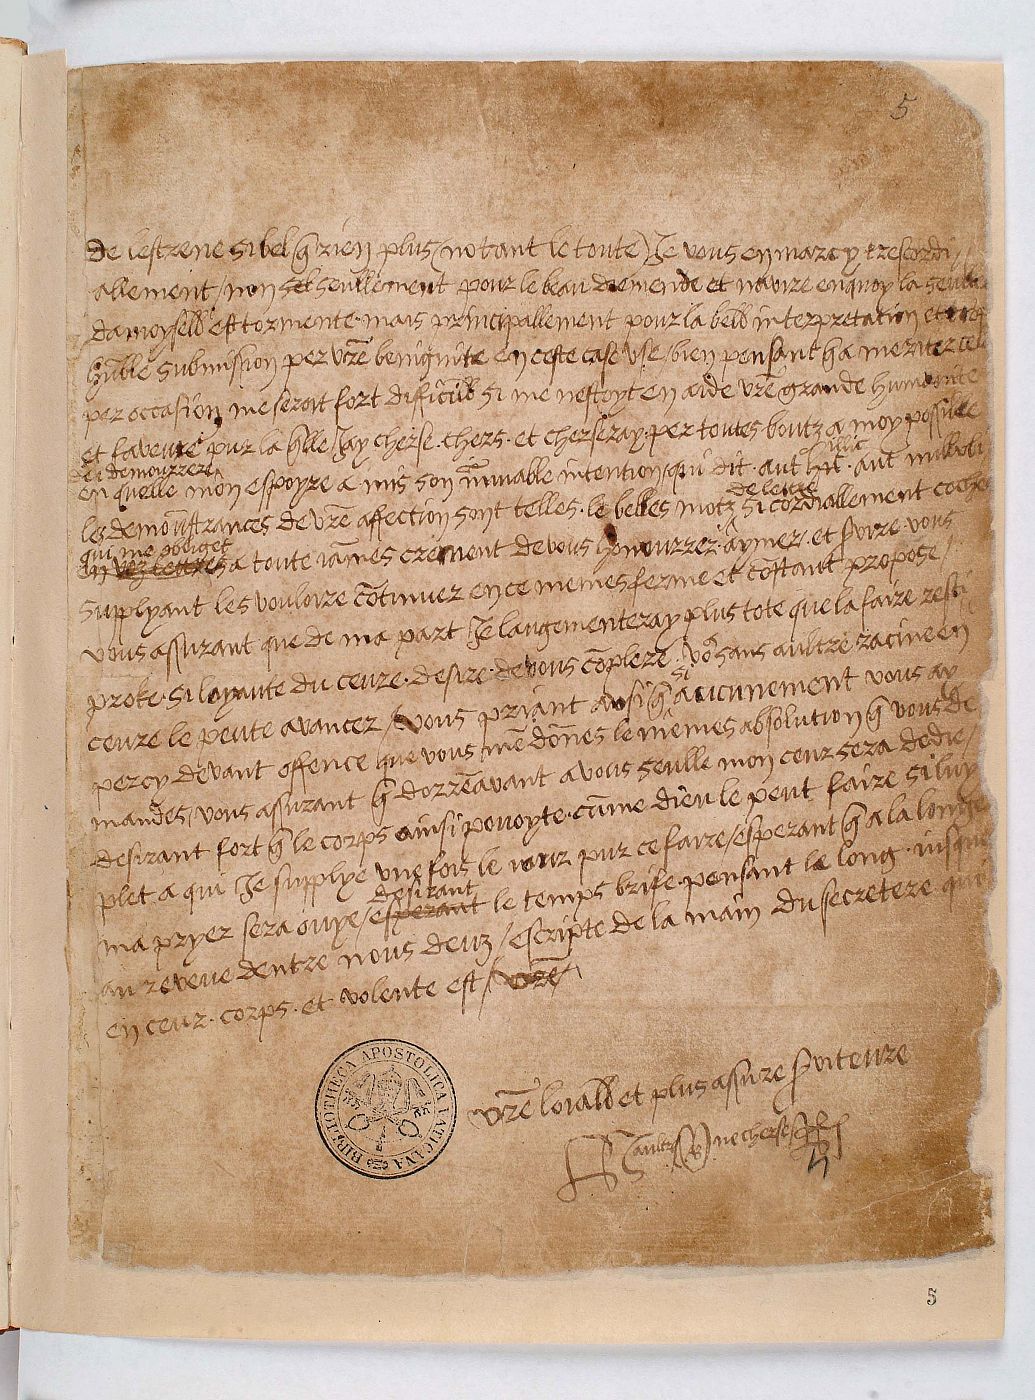 5
De lestrene si bel q̃ rien plus (notant le toute) Je vous en marcy trescordi/
allement/ non seullement pour le beau diemende et navire en quoy la seulette
damoyselle est tormente mais principallement pour la belle interpretation et trop
hũble submission per vr̃e benignite en ceste case use/ bien pensant q̃ a meriter cele
per occasion me seroit fort difficille si me nestoyt en aide vr̃e grande humanite
et faveure pur la q̃lle Jay cherse. chers. et cherseray. per toutes boutz a moy possible
de i demourrere illic
en quelle mon espoyre a mis son inmuable intention qui dit. aut. aut nullibi
les demõstrances de vr̃e affection sont telles. le belles motz de lettre si cordiallement coche
qui me obliget
en voz lettres a toute jam̃es creiement de vous honnourrer. aymer. et servire. vous
supplyant les vouloire cõtinuer en ce memes ferme et cõstant propose/
vous assurant que de ma part Je laugementeray plus tote que la faire resi
proke. si loyaute du ceure. desire. de vous cõplere. sans aultre racine en
si
ceure le peute avancer/ vous priant ausi q̃ aucunement vous ay
percy devant offence que vous me dõnes le memes absolution q̃ vous de
mandes/ vous assurant q̃ dorrenavant a vous seulle mon ceur sera dedie/
desirant fort q̃ le corps ainsi povoyte. cũme dieu le peut faire si luy
plet. a qui Je supplye une fois le jour pur ce faire/ esperant q̃ a la longe
desirant
ma pryer sera ouye/ esperant le temps brife. pensant le long. jusque
au reveue dentre nous deuz/ escripte de la main du secretere que
en ceur. corps. et volente est/ vr̃e/
vr̃e loiall et plus assure serviteure
H aultre AB ne cherse R
5
BIBLIOTHECA APOSTOLICA VATICANA
5